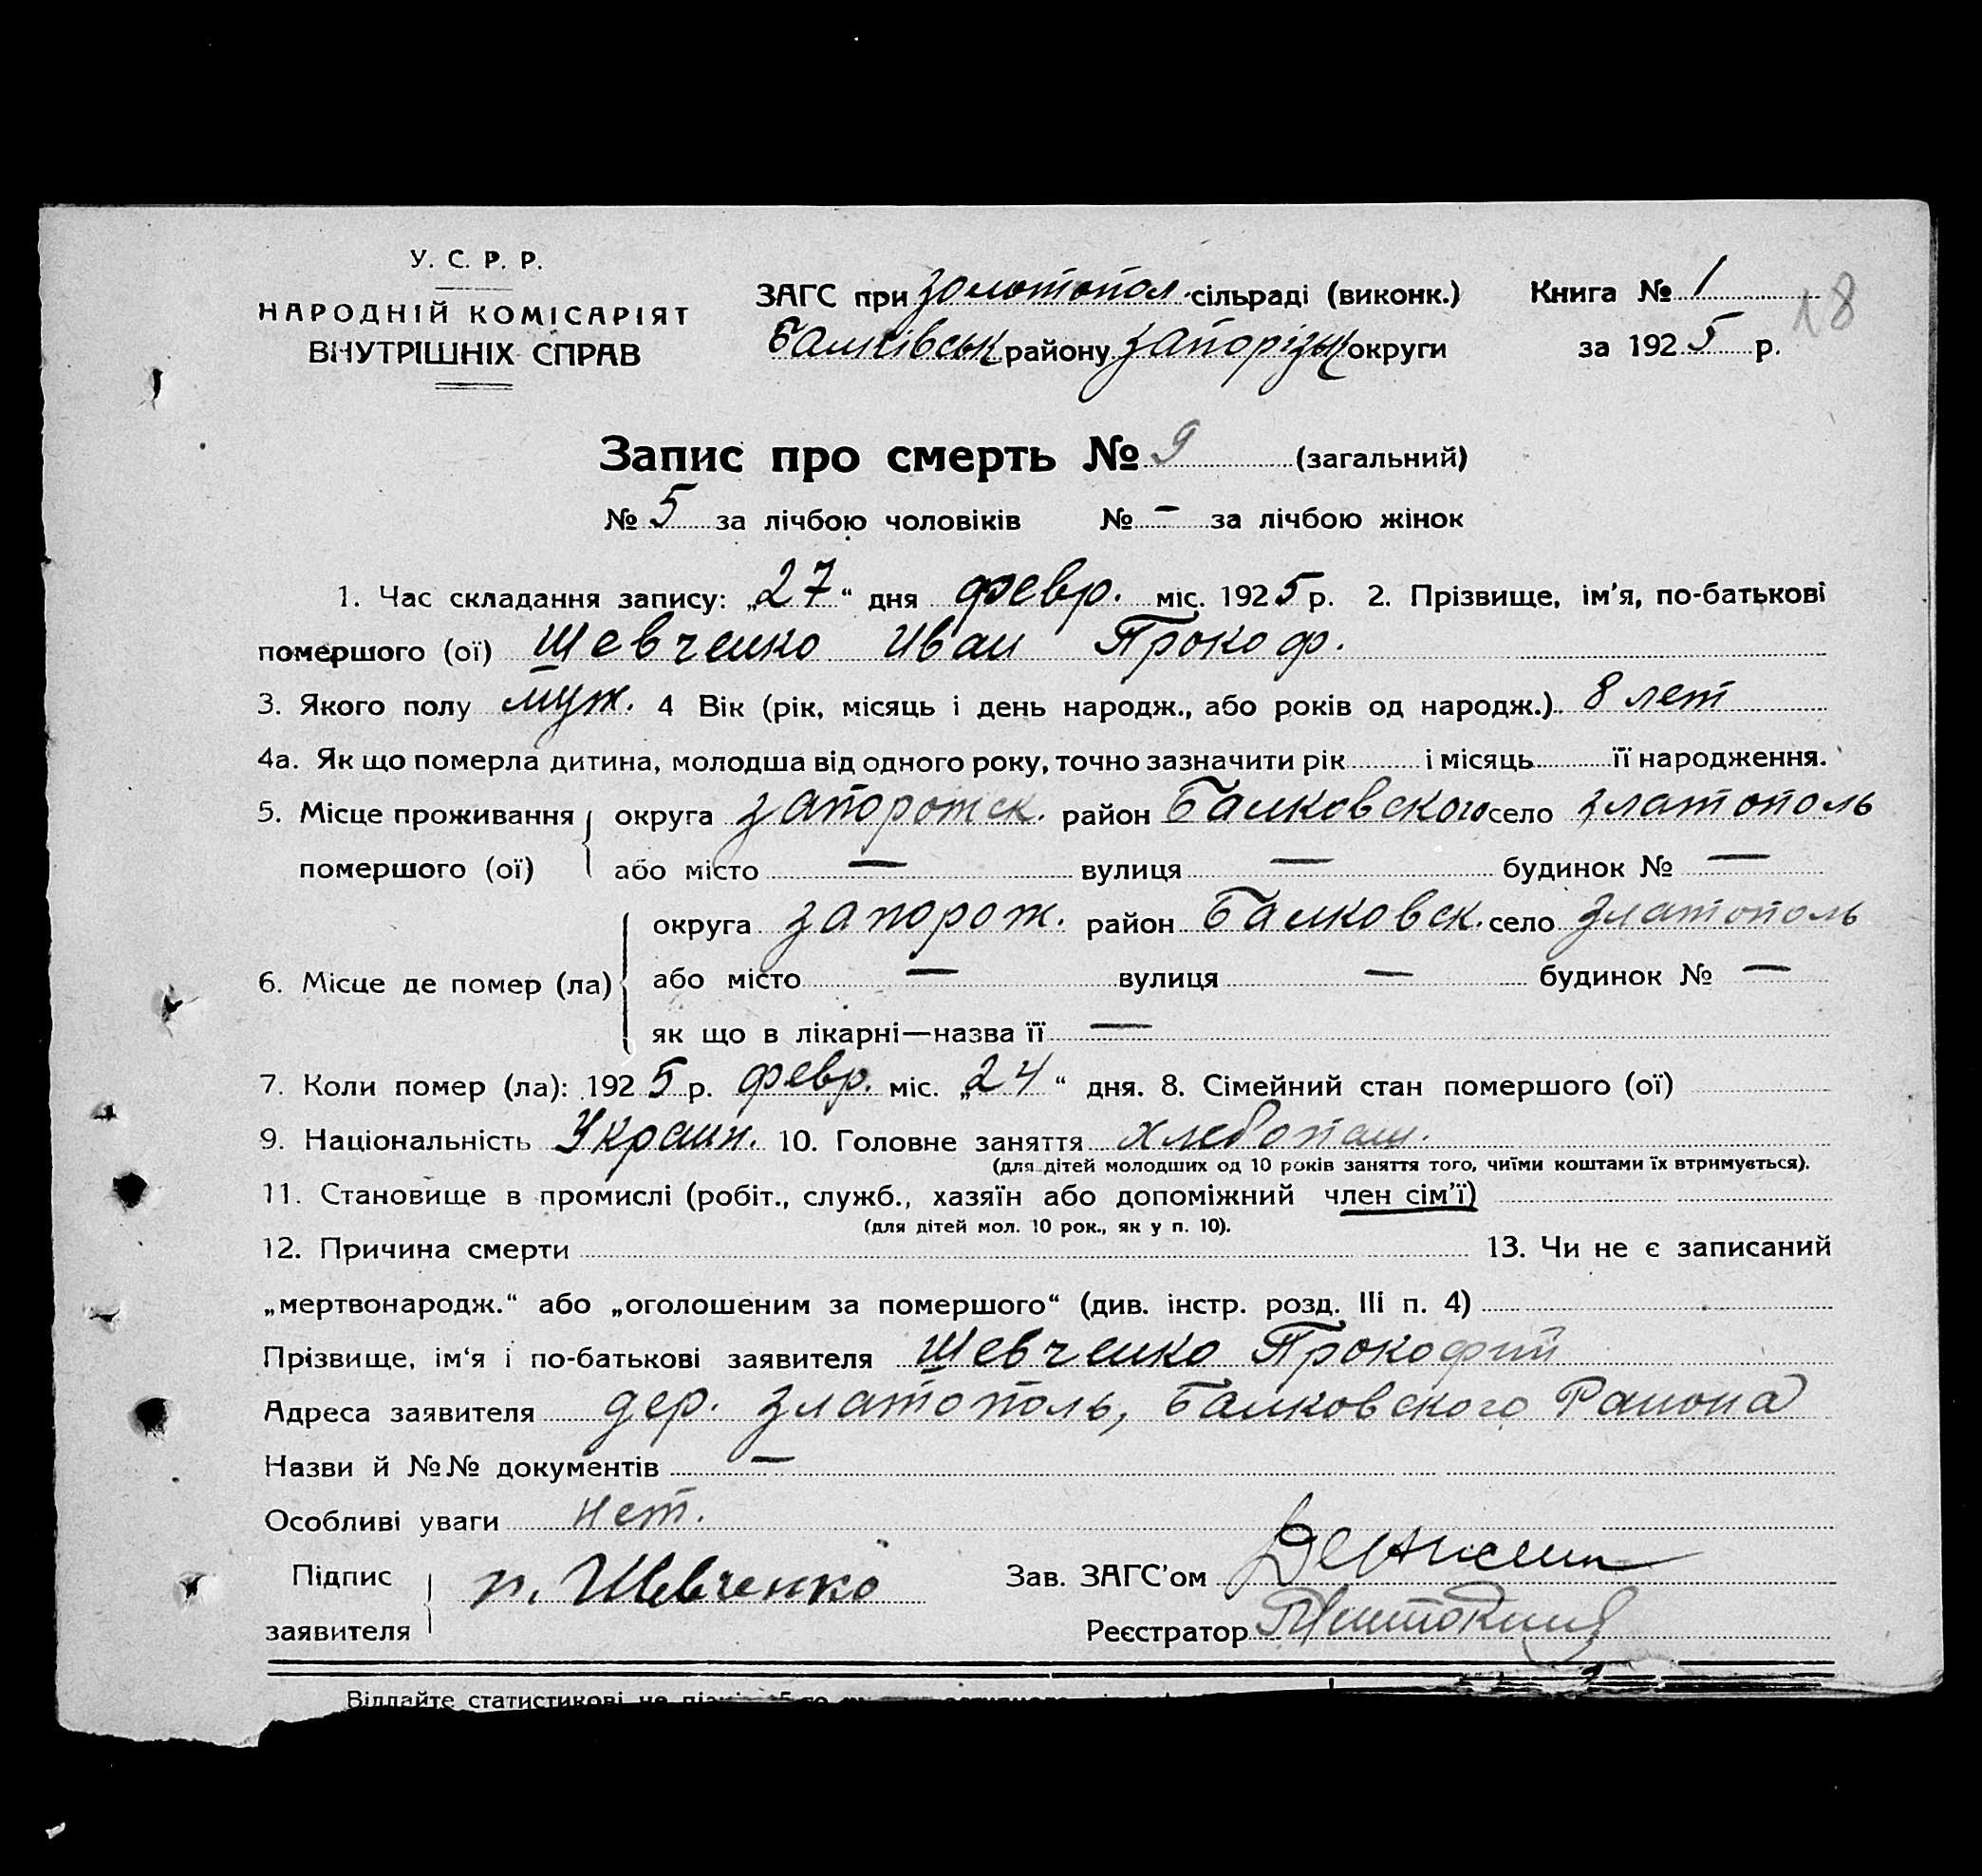 У. С. Р. Р.
НАРОДНІЙ КОМІСАРІЯТ
ВНУТРІШНІХ СПРАВ
ЗАГС при Золотопол. сільраді (виконк.)
Балківськ району Запорізьк округи
Книга № 1
за 1925 р.
18
Запис про смерть № 9 (загальний)
№ 5 за лічбою чоловіків № — за лічбою жінок
1. Час складання запису: „27“ дня февр. міс. 1925 р. 2. Прізвище, ім’я, по-батькові
помершого (ої) Шевченко Иван Прокоф.
3. Якого полу муж. 4 Вік (рік, місяць і день народж., або років од народж.). 8 лет
4а. Як що померла дитина, молодша від одного року, точно зазначити рік і місяць її народження.
5. Місце проживання округа Запорожск. район Балковского село Златополь
помершого (ої) або місто — вулиця — будинок № —
округа Запорож. район Балковск. село Златополь
6. Місце де помер (ла) або місто — вулиця — будинок № —
як що в лікарні—назва її —
7. Коли помер (ла): 1925 р. февр. міс. „24“ дня. 8. Сімейний стан помершого (ої)
9. Національність Украин. 10. Головне заняття хлебопаш.
(для дітей молодших од 10 років заняття того, чиїми коштами їх втримується).
11. Становище в промислі (робіт., служб., хазяїн або допоміжний член сім’ї)
(для дітей мол. 10 рок., як у п. 10).
12. Причина смерти 13. Чи не є записаний
„мертвонародж.“ або „оголошеним за помершого“ (див. інстр. розд. III п. 4)
Прізвище, ім‘я і по-батькові заявителя Шевченко Прокофий
Адреса заявителя дер. Златополь, Балковского Района
Назви й №№ документів —
Особливі уваги нет.
Підпис
заявителя п. Шевченко
Зав. ЗАГС’ом
Реєстратор
Віддайте статистикові не